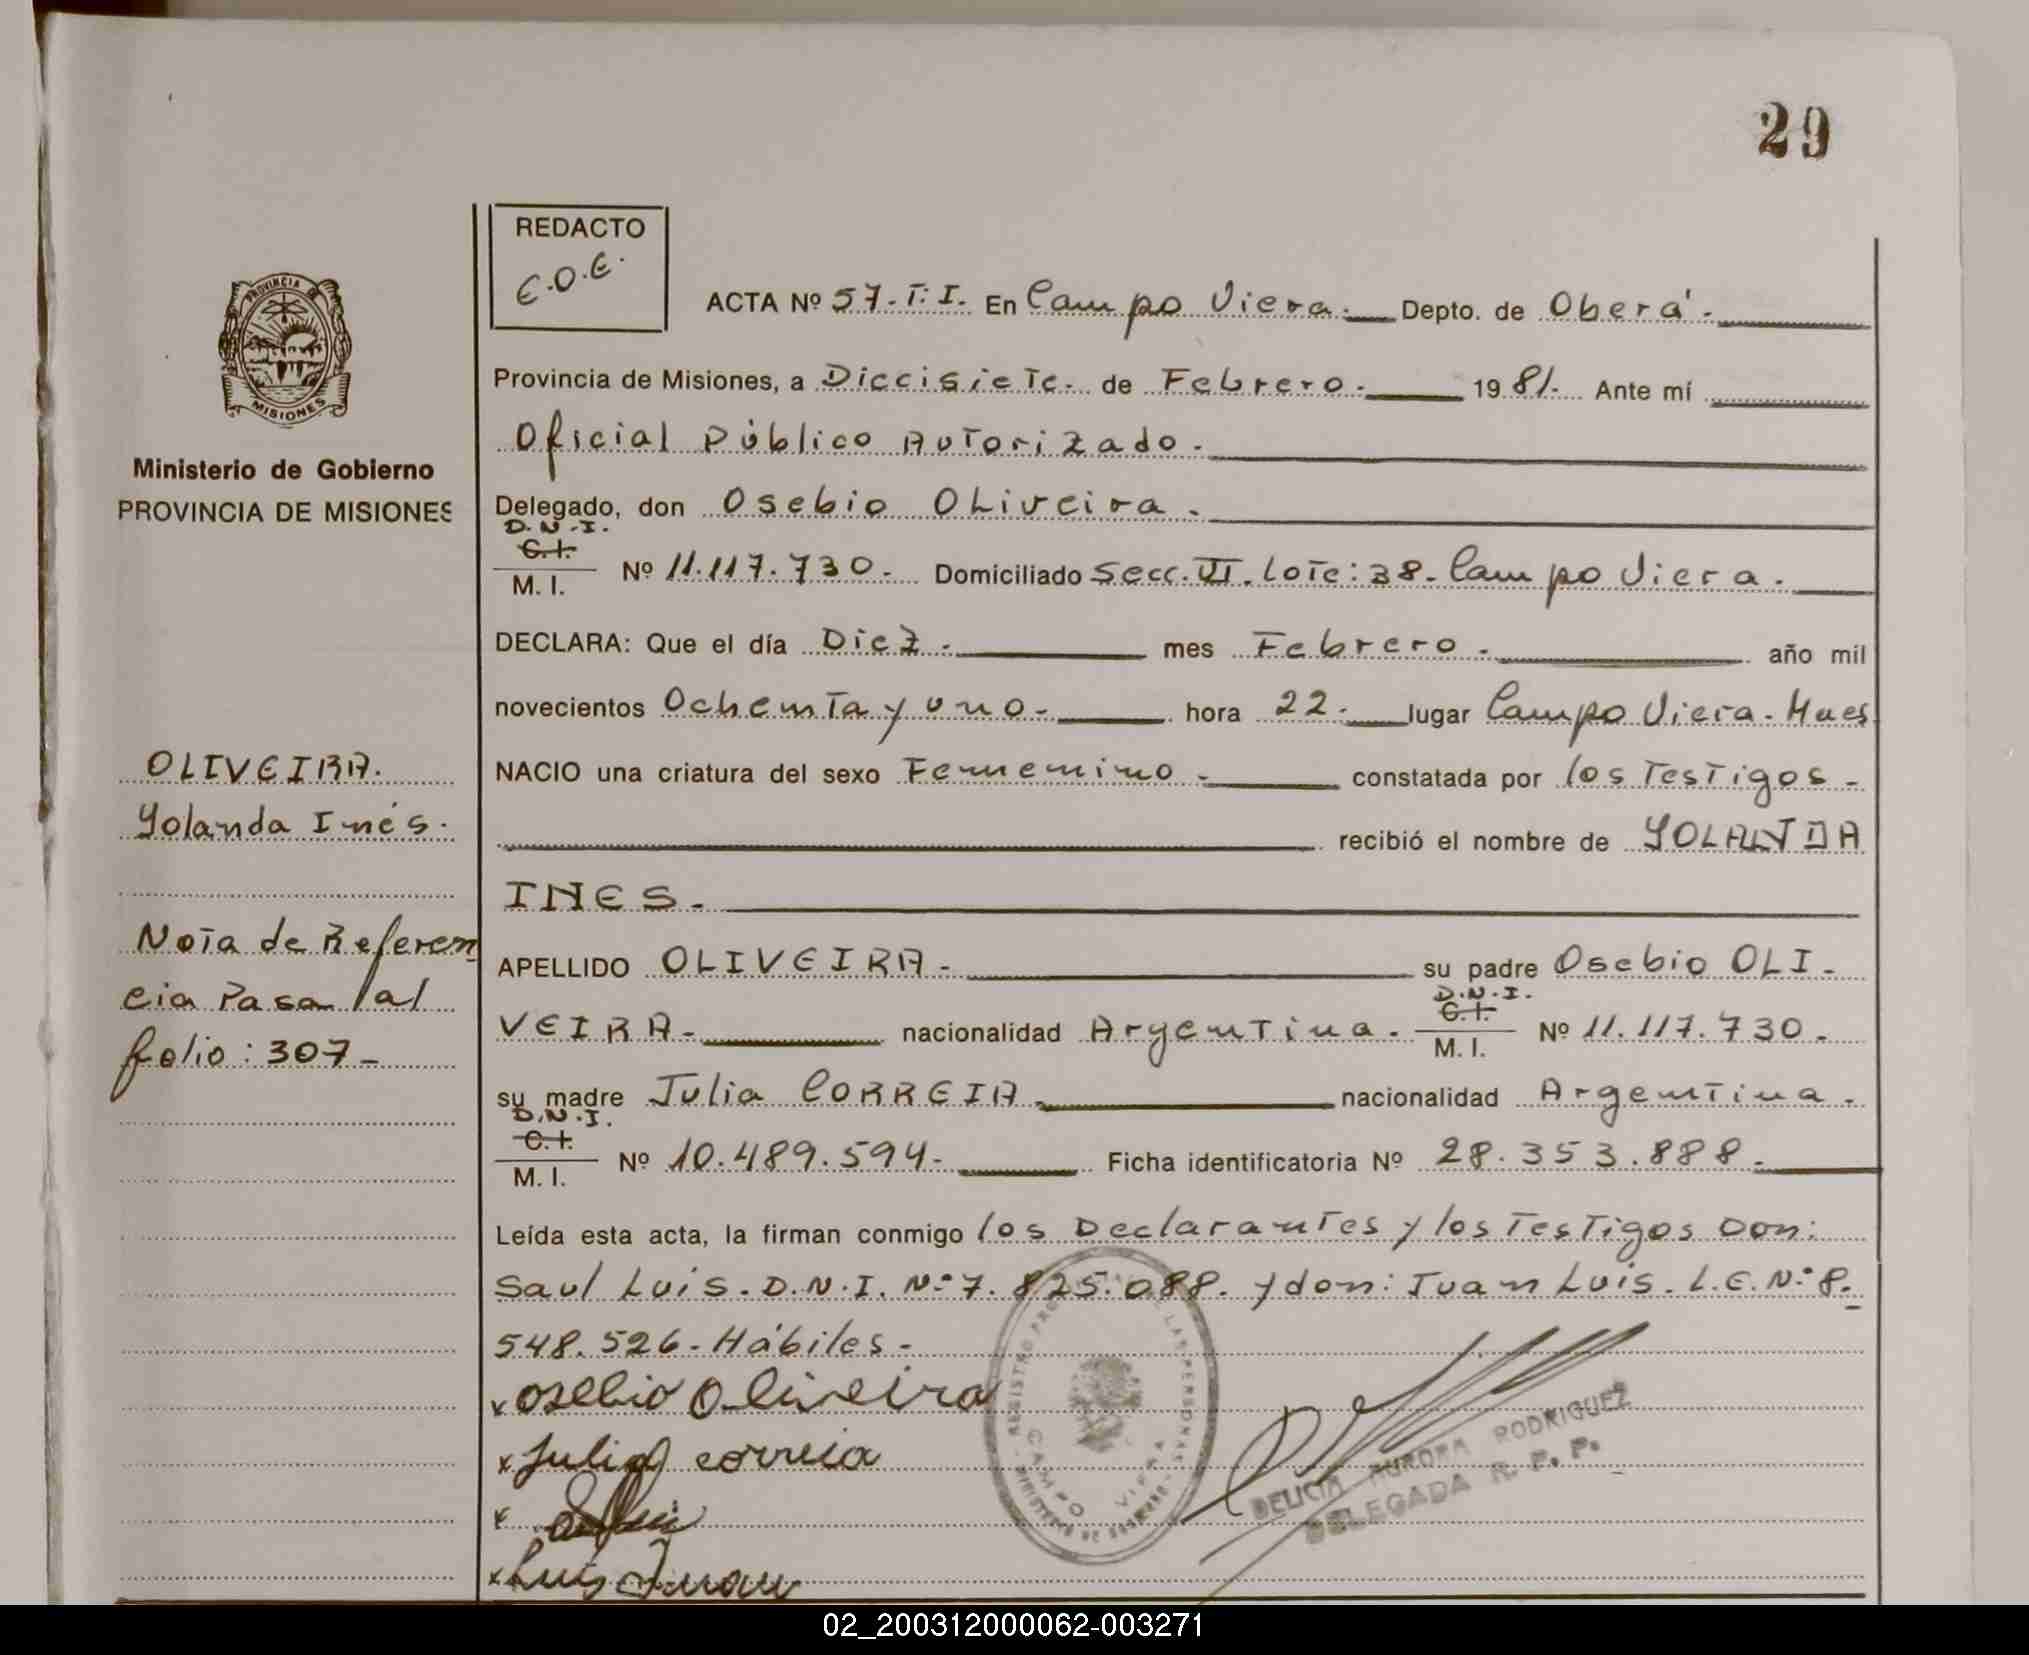 29
REDACTO
E.O.E.
PROVINCIA DE
MISIONES
Ministerio de Gobierno
PROVINCIA DE MISIONES
ACTA Nº 57.T:I. En Campo Viera. Depto. de Oberá.
Provincia de Misiones, a Diecisiete. de Febrero. 1981. Ante mí
Oficial Público Autorizado.
Delegado, don Osebio Oliveira.
D.N.I.
C.I.
M.I. Nº 11.117.730. Domiciliado Secc. VI. Lote: 38. Campo Viera.
DECLARA: Que el día Diez. mes Febrero. año mil
novecientos Ochenta y uno. hora 22. lugar Campo Viera. Mnes
NACIO una criatura del sexo Femenino. constatada por los Testigos.
recibió el nombre de YOLANDA
INES.
APELLIDO OLIVEIRA. su padre Osebio OLI-
VEIRA. nacionalidad Argentina. D.N.I. C.I. M.I. Nº 11.117.730.
su madre Julia CORREIA. nacionalidad Argentina.
D.N.I.
C.I.
M.I. Nº 10.489.594. Ficha identificatoria Nº 28.353.888.
Leída esta acta, la firman conmigo los Declarantes y los Testigos Don:
Saul Luis. D.N.I. Nº 7.825.088. y don: Juan Luis. L.E. Nº 8.
548.526. Hábiles.
x Osebio Oliveira
x Julia Correia
x
x Luis Juan
OLIVEIRA.
Yolanda Inés.
Nota de Referen
cia Pasa al
folio: 307-
REGISTRO PROVINCIAL DE LAS PERSONAS
CAMPO VIERA
MINISTERIO DE GOBIERNO
DELICIA AURORA RODRIGUEZ
DELEGADA R. P. P.
02_200312000062-003271